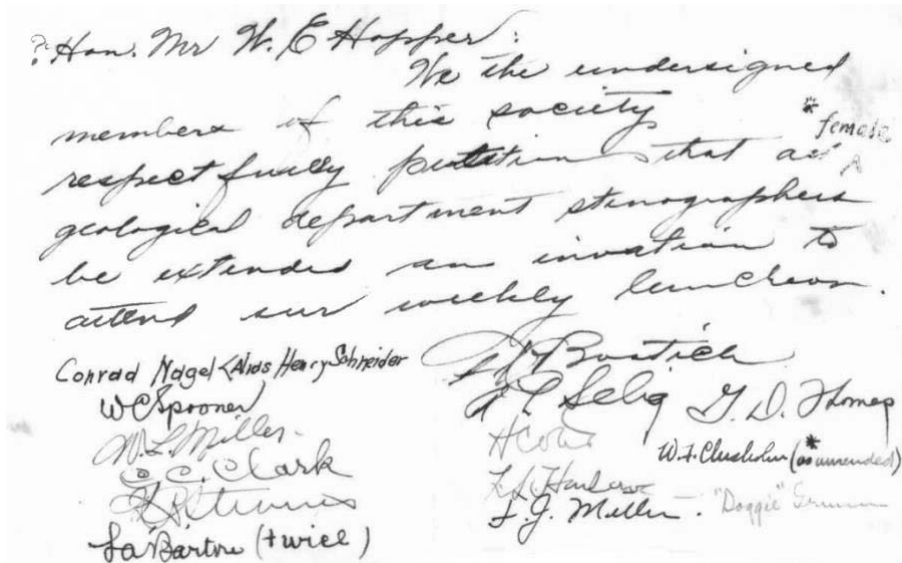 ?: Hon. Mr W. E Hopper:
We the undersigned
members of this society
* female
respectfully petition that all
geological department stenographers
be extended an invation to
attend our weekly luncheon.
Conrad Nagel <Alias Henry Schneider
W C Spooner
W. L. Miller.
C. C. Clark
Bostick
Selig
G. D. Thomas
W. F. Chisholm (* as amended)
L. J. Miller.
"Doggie"
Bartve (twice)